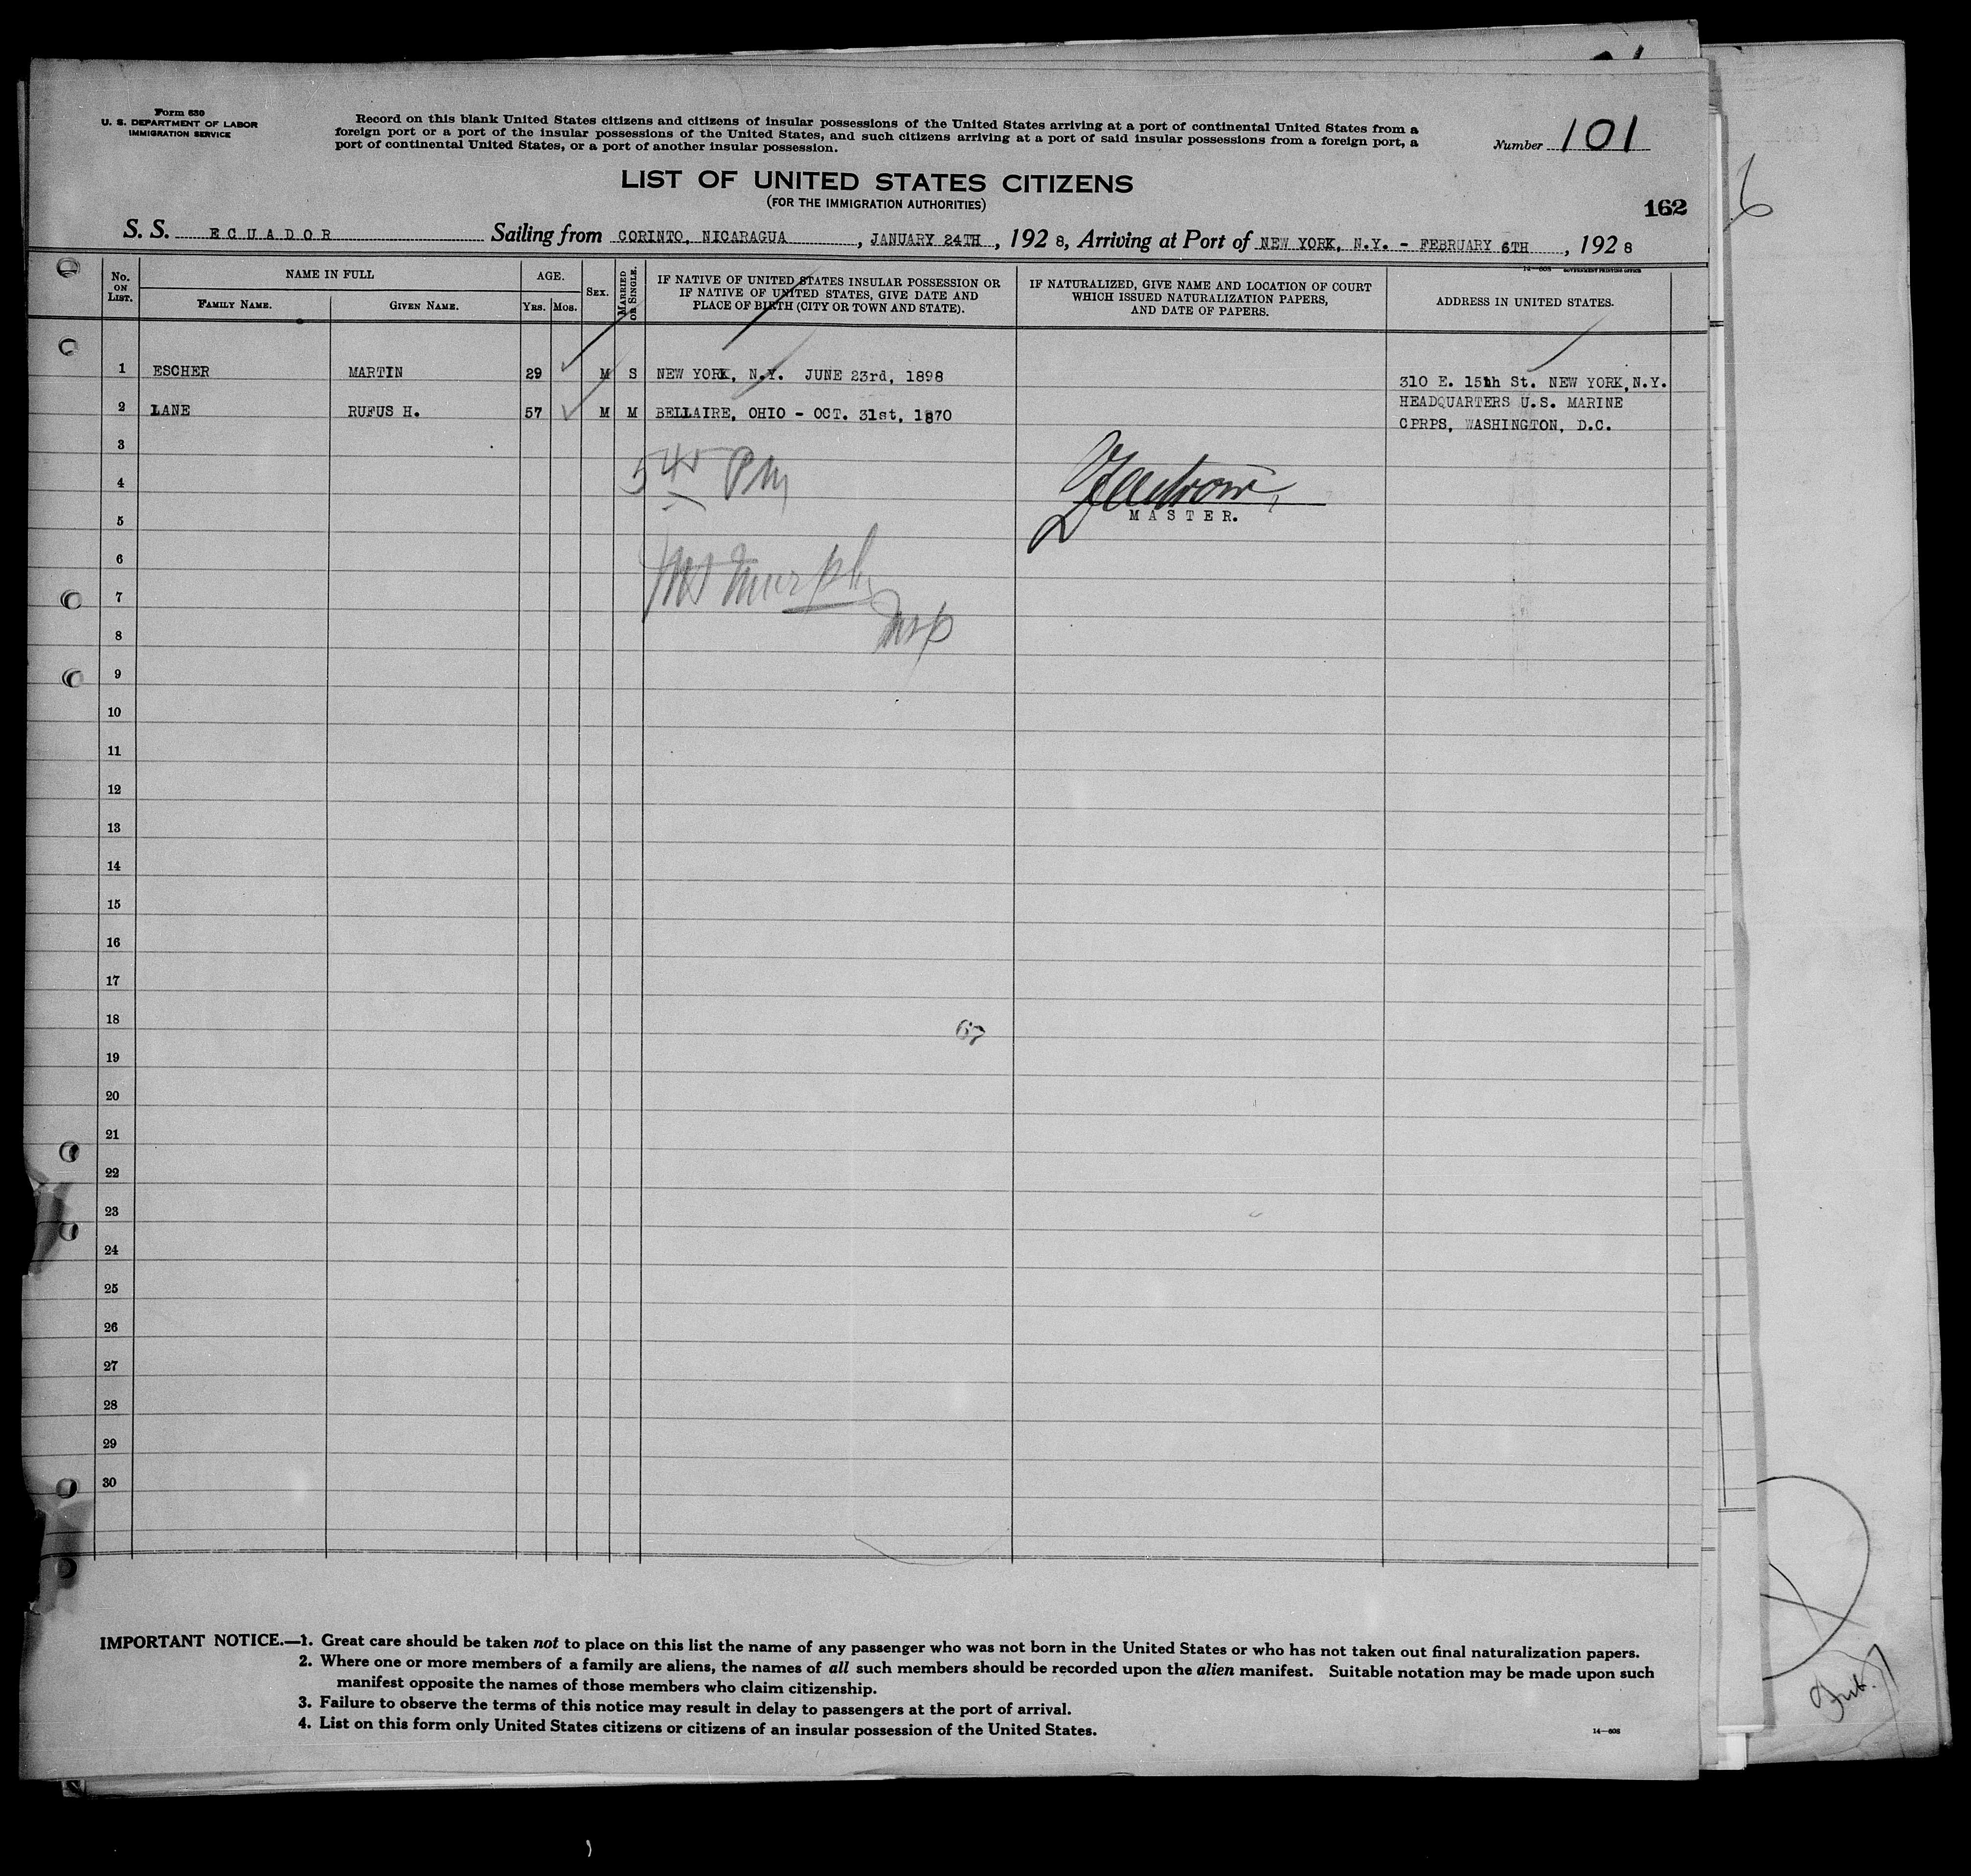 Form 630
U. S. DEPARTMENT OF LABOR
IMMIGRATION SERVICE
Record on this blank United States citizens and citizens of insular possessions of the United States arriving at a port of continental United States from a
foreign port or a port of the insular possessions of the United States, and such citizens arriving at a port of said insular possessions from a foreign port, a
port of continental United States, or a port of another insular possession.
Number 101
LIST OF UNITED STATES CITIZENS
(FOR THE IMMIGRATION AUTHORITIES)
162
S. S. ECUADOR Sailing from CORINTO, NICARAGUA, JANUARY 24TH, 1928, Arriving at Port of NEW YORK, N.Y. - FEBRUARY 6TH, 1928
14—608 GOVERNMENT PRINTING OFFICE
No. ON LIST.
NAME IN FULL
FAMILY NAME.
GIVEN NAME.
AGE.
YRS. MOS.
SEX.
MARRIED OR SINGLE.
IF NATIVE OF UNITED STATES INSULAR POSSESSION OR
IF NATIVE OF UNITED STATES, GIVE DATE AND
PLACE OF BIRTH (CITY OR TOWN AND STATE).
IF NATURALIZED, GIVE NAME AND LOCATION OF COURT
WHICH ISSUED NATURALIZATION PAPERS,
AND DATE OF PAPERS.
ADDRESS IN UNITED STATES.
1 ESCHER MARTIN 29 M S NEW YORK, N.Y. JUNE 23rd, 1898 310 E. 15th St. NEW YORK, N.Y.
2 LANE RUFUS H. 57 M M BELLAIRE, OHIO - OCT. 31st, 1870 HEADQUARTERS U.S. MARINE
CPRPS, WASHINGTON, D.C.
3
4
5 45 PM
MASTER.
5
6
7
Murphy
Insp
8
9
10
11
12
13
14
15
16
17
18
67
19
20
21
22
23
24
25
26
27
28
29
30
IMPORTANT NOTICE.—1. Great care should be taken not to place on this list the name of any passenger who was not born in the United States or who has not taken out final naturalization papers.
2. Where one or more members of a family are aliens, the names of all such members should be recorded upon the alien manifest. Suitable notation may be made upon such
manifest opposite the names of those members who claim citizenship.
3. Failure to observe the terms of this notice may result in delay to passengers at the port of arrival.
4. List on this form only United States citizens or citizens of an insular possession of the United States.
14—608